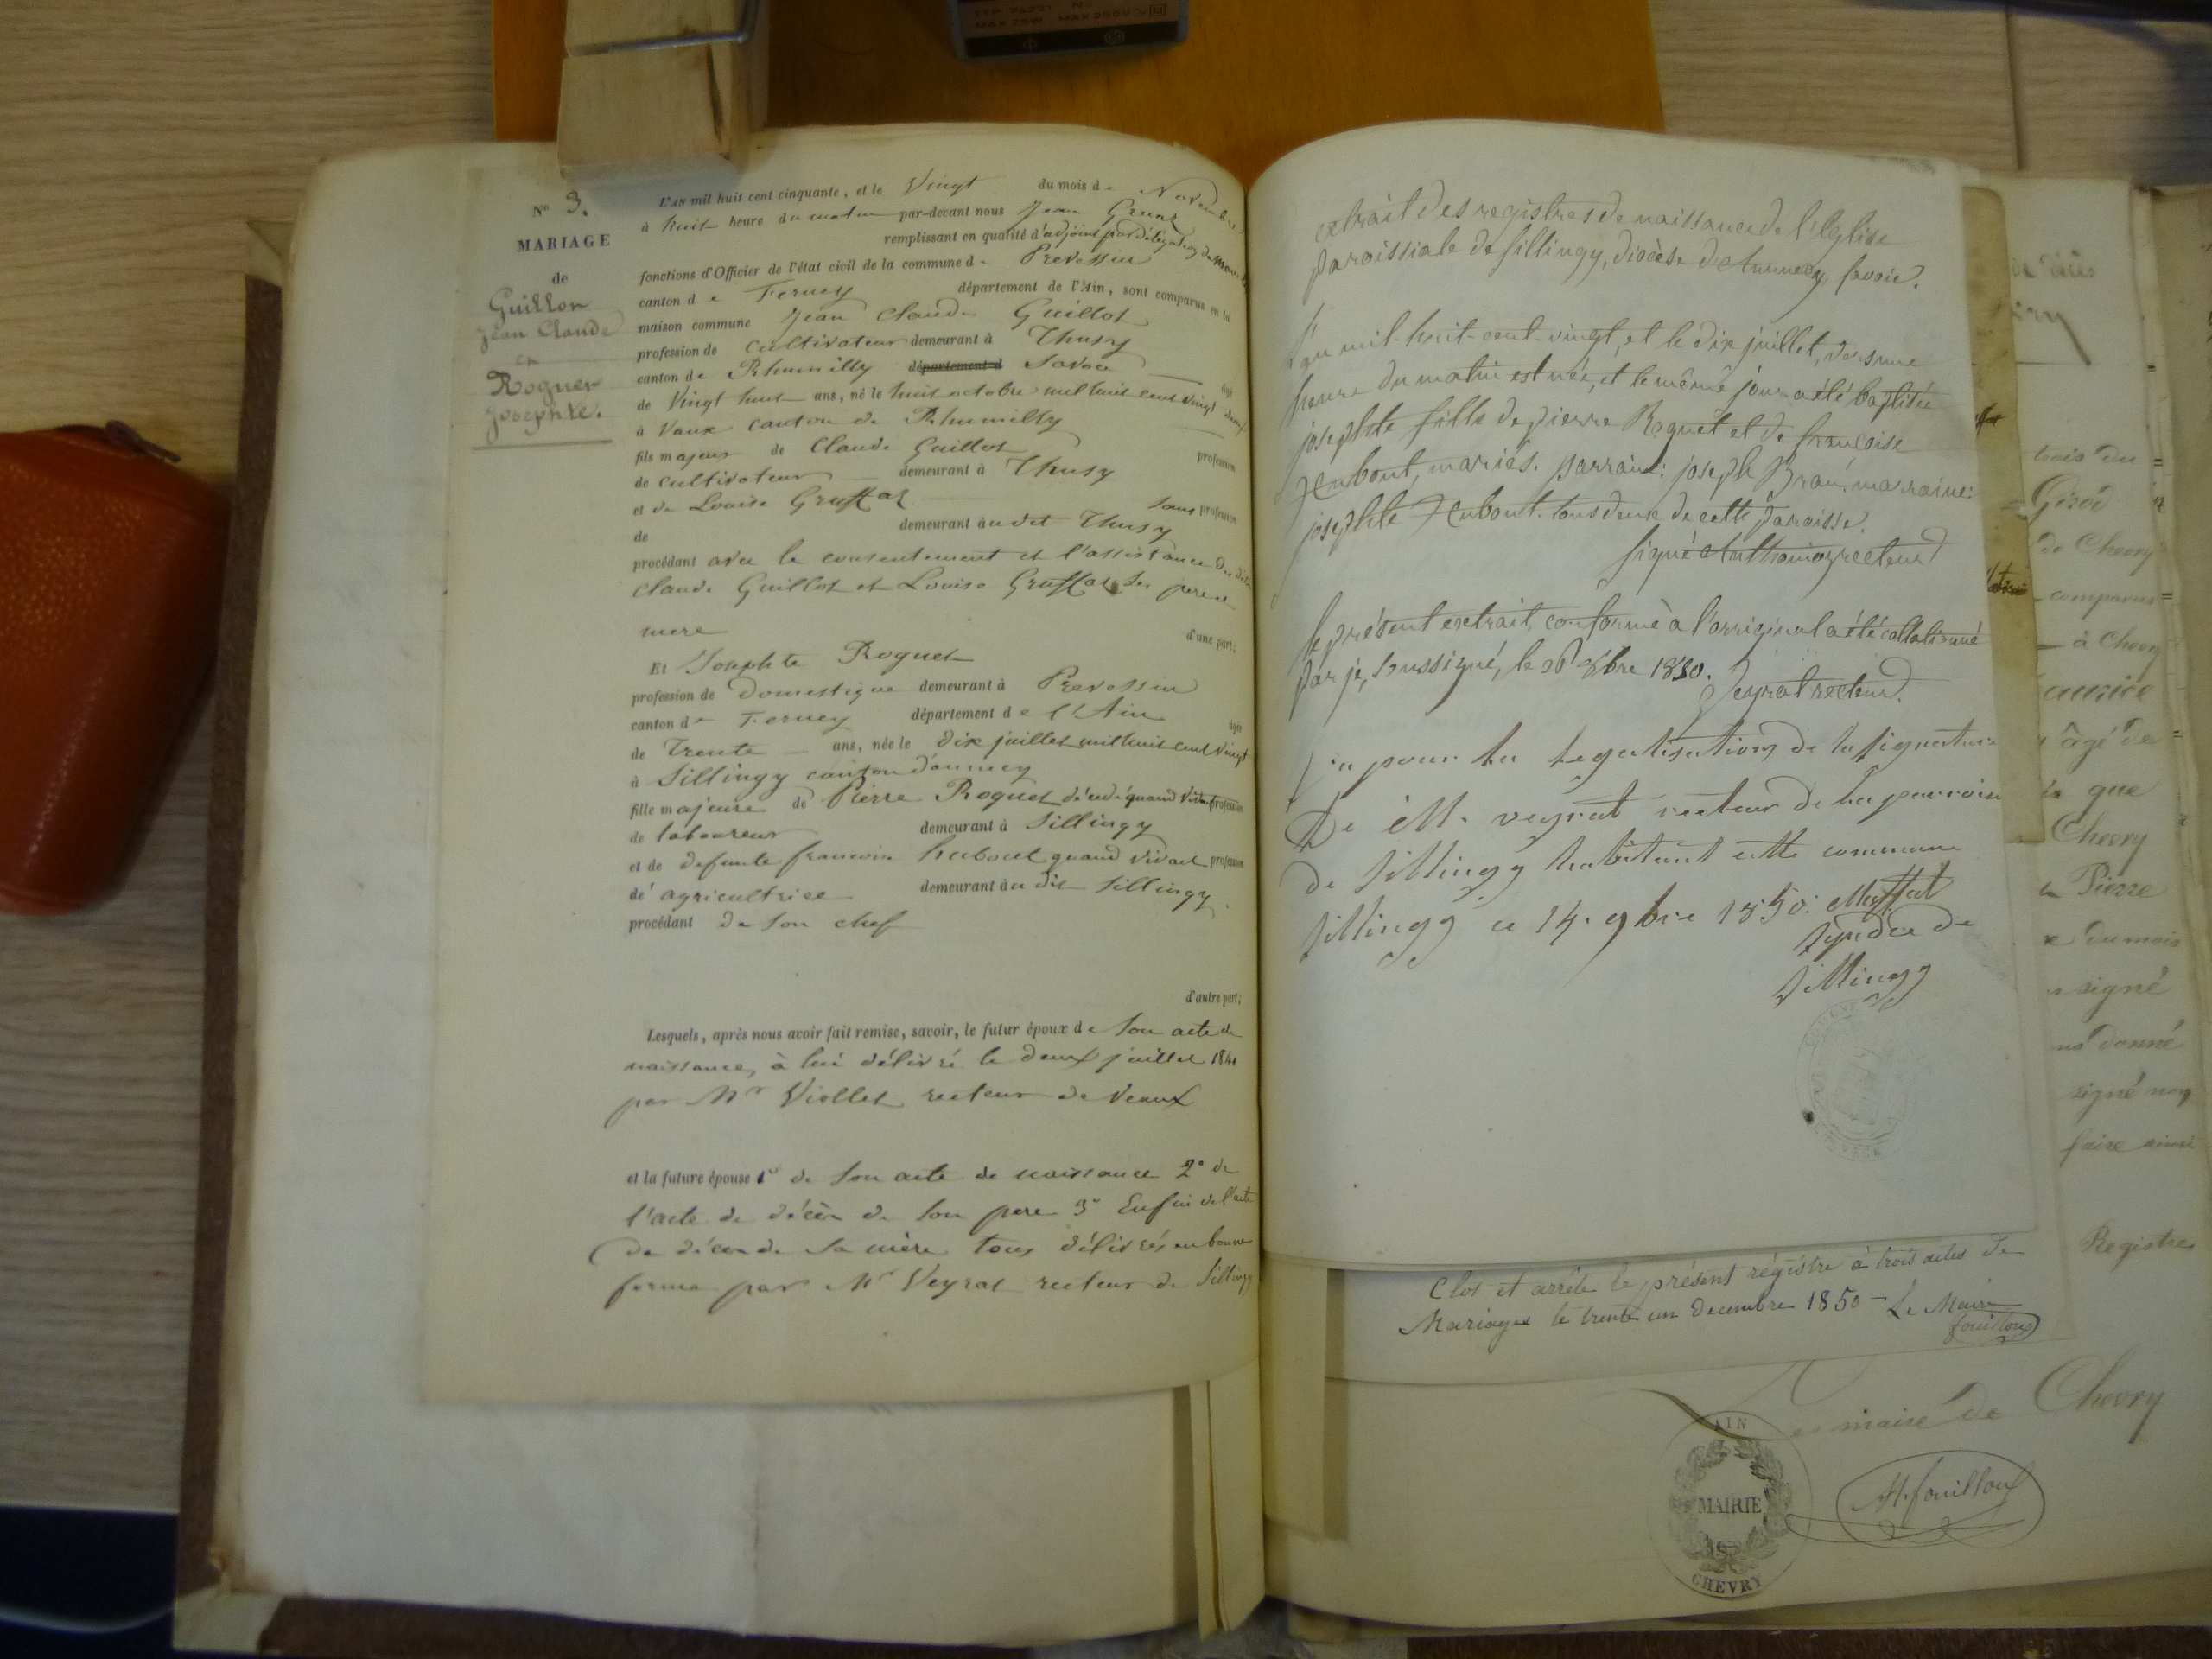 N° 3.
MARIAGE
de
Guillon
Jean Claude
en
Roguer
Josephte.
L'AN mil huit cent cinquante, et le Vingt du mois de Novembre
à huit heure du matin par-devant nous Jean
remplissant en qualité d'adjoint par délégation du Maire les
fonctions d'Officier de l'état civil de la commune de Prevessin
canton de Ferney département de l'Ain, sont comparus en la
maison commune Jean Claude Guillot
profession de cultivateur demeurant à Thusy
canton de Rhumilly département d Savoie âgé
de Vingt huit ans, né le huit octobre mil huit cent vingt deux
à Vaux canton de Rhumilly
fils majeur de Claude Guillot profession
de cultivateur demeurant à Thusy
et de Louise Gruffaz sans profession
de demeurant au dit Thusy
procédant avec le consentement et l'assistance des dits
Claude Guillot et Louise Gruffaz ses pere et
mere d'une part;
Et Josephte Roguet
profession de Domestique demeurant à Prevessin
canton de Ferney département de l'Ain âgée
de Trente ans, née le dix juillet mil huit cent vingt
à Sillingy canton d'annecy
fille majeure de Pierre Roguet décédé quand vivait profession
de laboureur demeurant à Sillingy
et de defunte francoise hubout quand vivait profession
de agricultrice demeurant au dit Sillingy
procédant de son chef
d'autre part;
Lesquels, après nous avoir fait remise, savoir, le futur époux de son acte de
naissance, à lui délivré le deux juillet 184
par Mr Viollet recteur de Veaux
et la future épouse 1° de son acte de naissance 2° de
l'acte de décès de son pere 3° Enfin de l'acte
de décès de sa mère tous délivrés en bonne
forme par Mr Veyrat recteur de Sillingy
extrait des registres de naissance de l'Eglise
paroissiale de sillingy, diocèse d'Annecy, savoie.
L'an mil-huit-cent-vingt, et le dix juillet, vers une
heure du matin est née, et le même jour a été baptisée
josephte fille de pierre Roguet et de francoise
hubout, mariés. parrain: joseph marraine:
josephte hubout. tous deux de cette paroisse.
signé recteur
le présent extrait conforme à l'orriginal a été collationné
par je, soussigné, le 26 8bre 1850. Veyrat recteur.
Vu pour la legalisation de la signature
De M. veyrat recteur de la parroisse
de Sillingy habitant cette commune
Sillingy ce 14. 9bre 1850. Muffat
Syndic de
Sillingy
Clos et arrêté le présent régistre à trois actes de
Mariages le trente un Decembre 1850 - Le Maire
fouilloux
maire de Chevry
AIN
MAIRIE
DE
CHEVRY
H. fouilloux
trois du
Girod
de Chevry
comparus
à Chevry
âgé de
que
Chevry
Pierre
du mois
signé
donné
signé non
faire ainsi
Registre